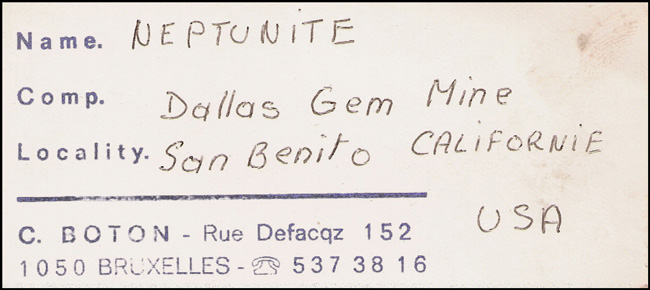 Name. NEPTUNITE
Comp. Dallas Gem Mine
Locality. San Benito CALIFORNIE
USA
C. BOTON - Rue Defacqz 152
1050 BRUXELLES - ☏ 537 38 16